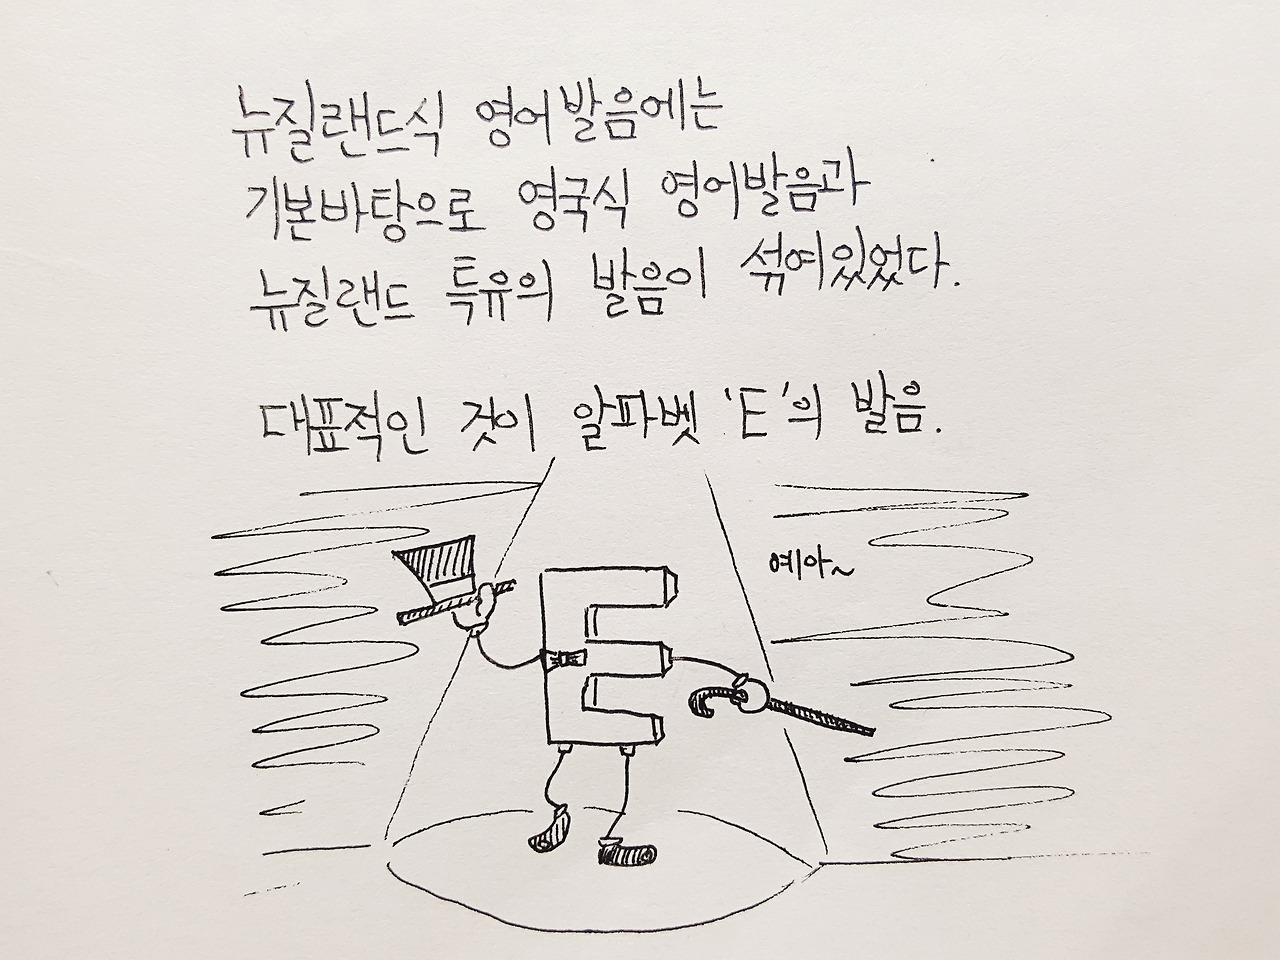 뉴질랜드식 영어발음에는
기본바탕으로 영국식 영어발음과
뉴질랜드 특유의 발음이 섞여있었다.
대표적인 것이 알파벳 'E'의 발음.
예아~
E